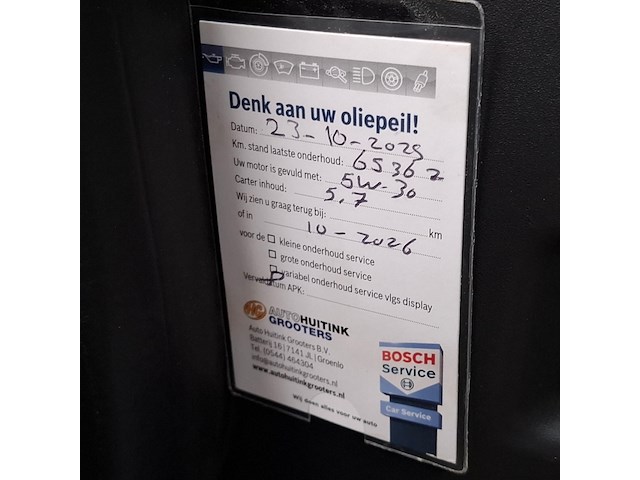 Denk aan uw oliepeil!
Datum: 23-10-2025
Km. stand laatste onderhoud: 65362
Uw motor is gevuld met: 5W-30
Carter inhoud: 5,7
Wij zien u graag terug bij: km
of in 10-2026
voor de kleine onderhoud service
grote onderhoud service
variabel onderhoud service vlgs display
Vervaldatum APK:
AUTO HUITINK
GROOTERS
Auto Huitink Grooters B.V.
Batterij 16 | 7141 JL | Groenlo
Tel. (0544) 464304
info@autohuitinkgrooters.nl
www.autohuitinkgrooters.nl
Wij doen alles voor uw auto
BOSCH
Service
Car Service